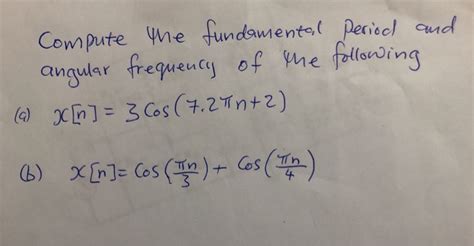 Compute the fundamental Period and
angular frequency of the following
(a) x[n] = 3 Cos(7.2πn+2)
(b) x[n] = Cos(πn/3) + Cos(πn/4)